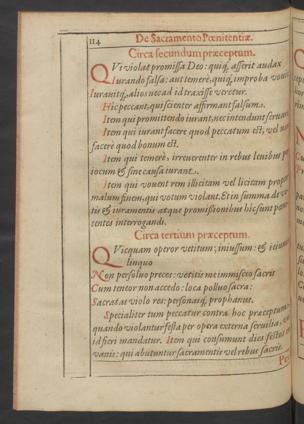 114
De Sacramento Pœnitentiæ.
Circa secundum præceptum.
QVi violat promissa Deo: quiq́; asserit audax
Iurando falsa: aut temerè, quiq́; improba vouit
Iurauitq́;, alios nec ad id traxisse veretur.
Hic peccant, qui scienter affirmant falsum.
Item qui promittendo iurant, nec intendunt seruare
Item qui iurant facere quod peccatum est, vel non
facere quod bonum est.
Item qui temerè, irreuerenter in rebus leuibus per
iocum & sine causa iurant.
Item qui vouent rem illicitam vel licitam propter
malum finem, qui votum violant. Et in summa de vo-
tis & iuramentis atque promissionibus hic sunt pœni-
tentes interrogandi.
Circa tertium præceptum.
QVicquam operor vetitum; iniussum: & ieiunia
linquo
Non persoluo preces: vetitis me immisceo sacris
Cum tentor non accedo: loca polluo sacra:
Sacratas violo res: personasq́;, prophanus.
Specialiter tum peccatur contra hoc præceptum,
quando violantur festa per opera externa seruilia, &
id fieri mandatur. Item qui consumunt dies festos
vanis: qui abutuntur sacramentis vel rebus sacris.